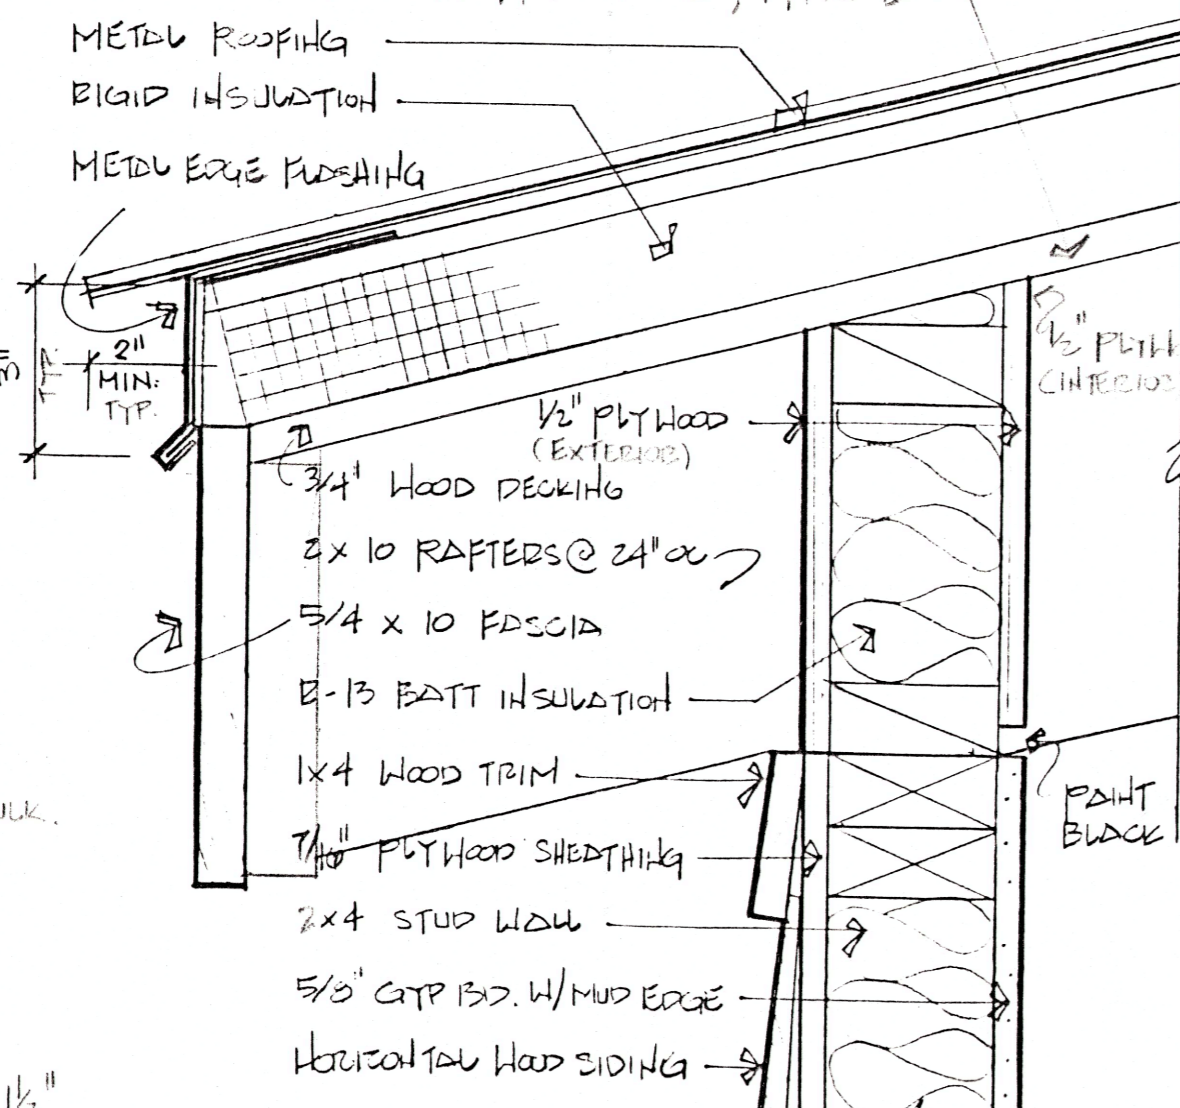 METAL ROOFING
RIGID INSULATION
METAL EDGE FLASHING
3"
TYP.
2"
MIN.
TYP.
1/2" PLYWOOD
(EXTERIOR)
1/2"
3/4" WOOD DECKING
2 x 10 RAFTERS @ 24" OC
5/4 x 10 FASCIA
R-13 BATT INSULATION
1x4 WOOD TRIM
PAINT
BLACK
7/16" PLYWOOD SHEATHING
2x4 STUD WALL
5/8" GYP BD. W/ MUD EDGE
HORIZONTAL WOOD SIDING
1 1/2"